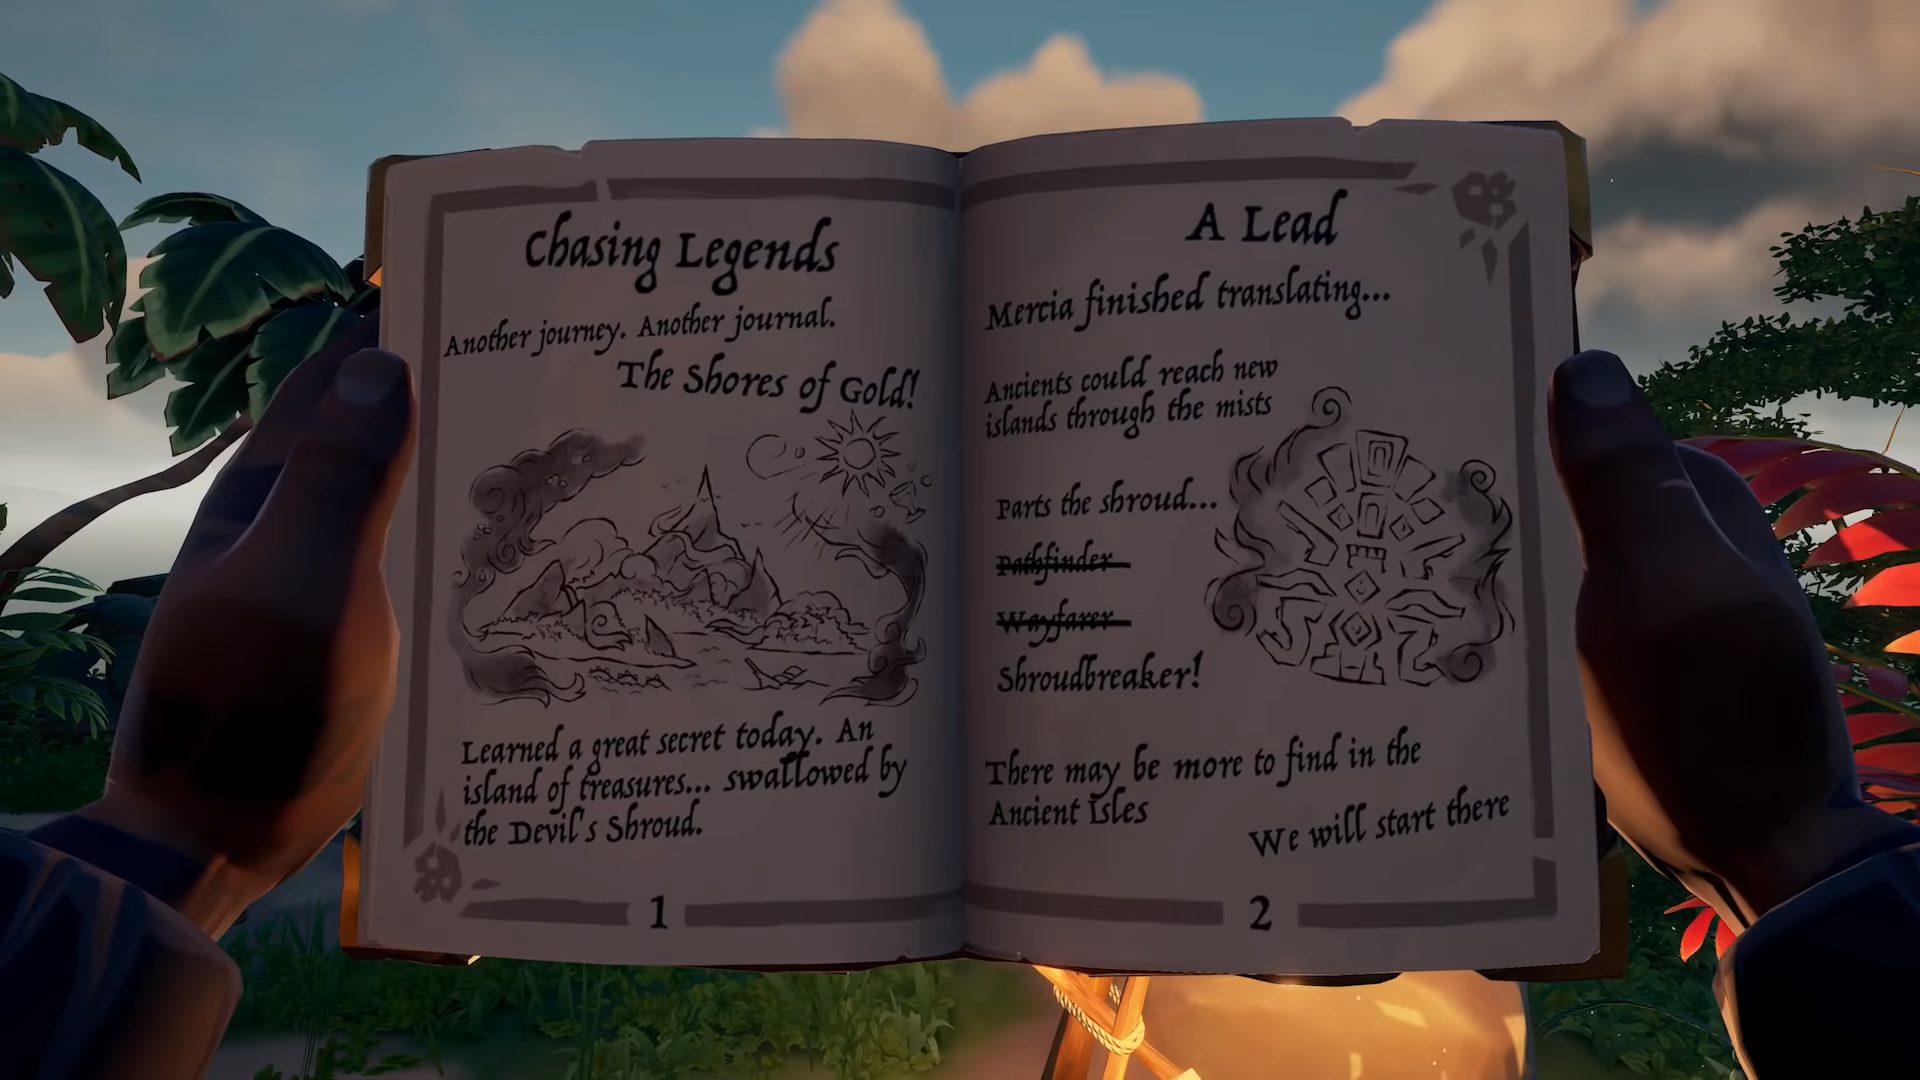 Chasing Legends
Another journey. Another journal.
The Shores of Gold!
Learned a great secret today. An
island of treasures... swallowed by
the Devil's Shroud.
1
A Lead
Mercia finished translating...
Ancients could reach new
islands through the mists
Parts the shroud...
Pathfinder
Wayfarer
Shroudbreaker!
There may be more to find in the
Ancient Isles
We will start there
2